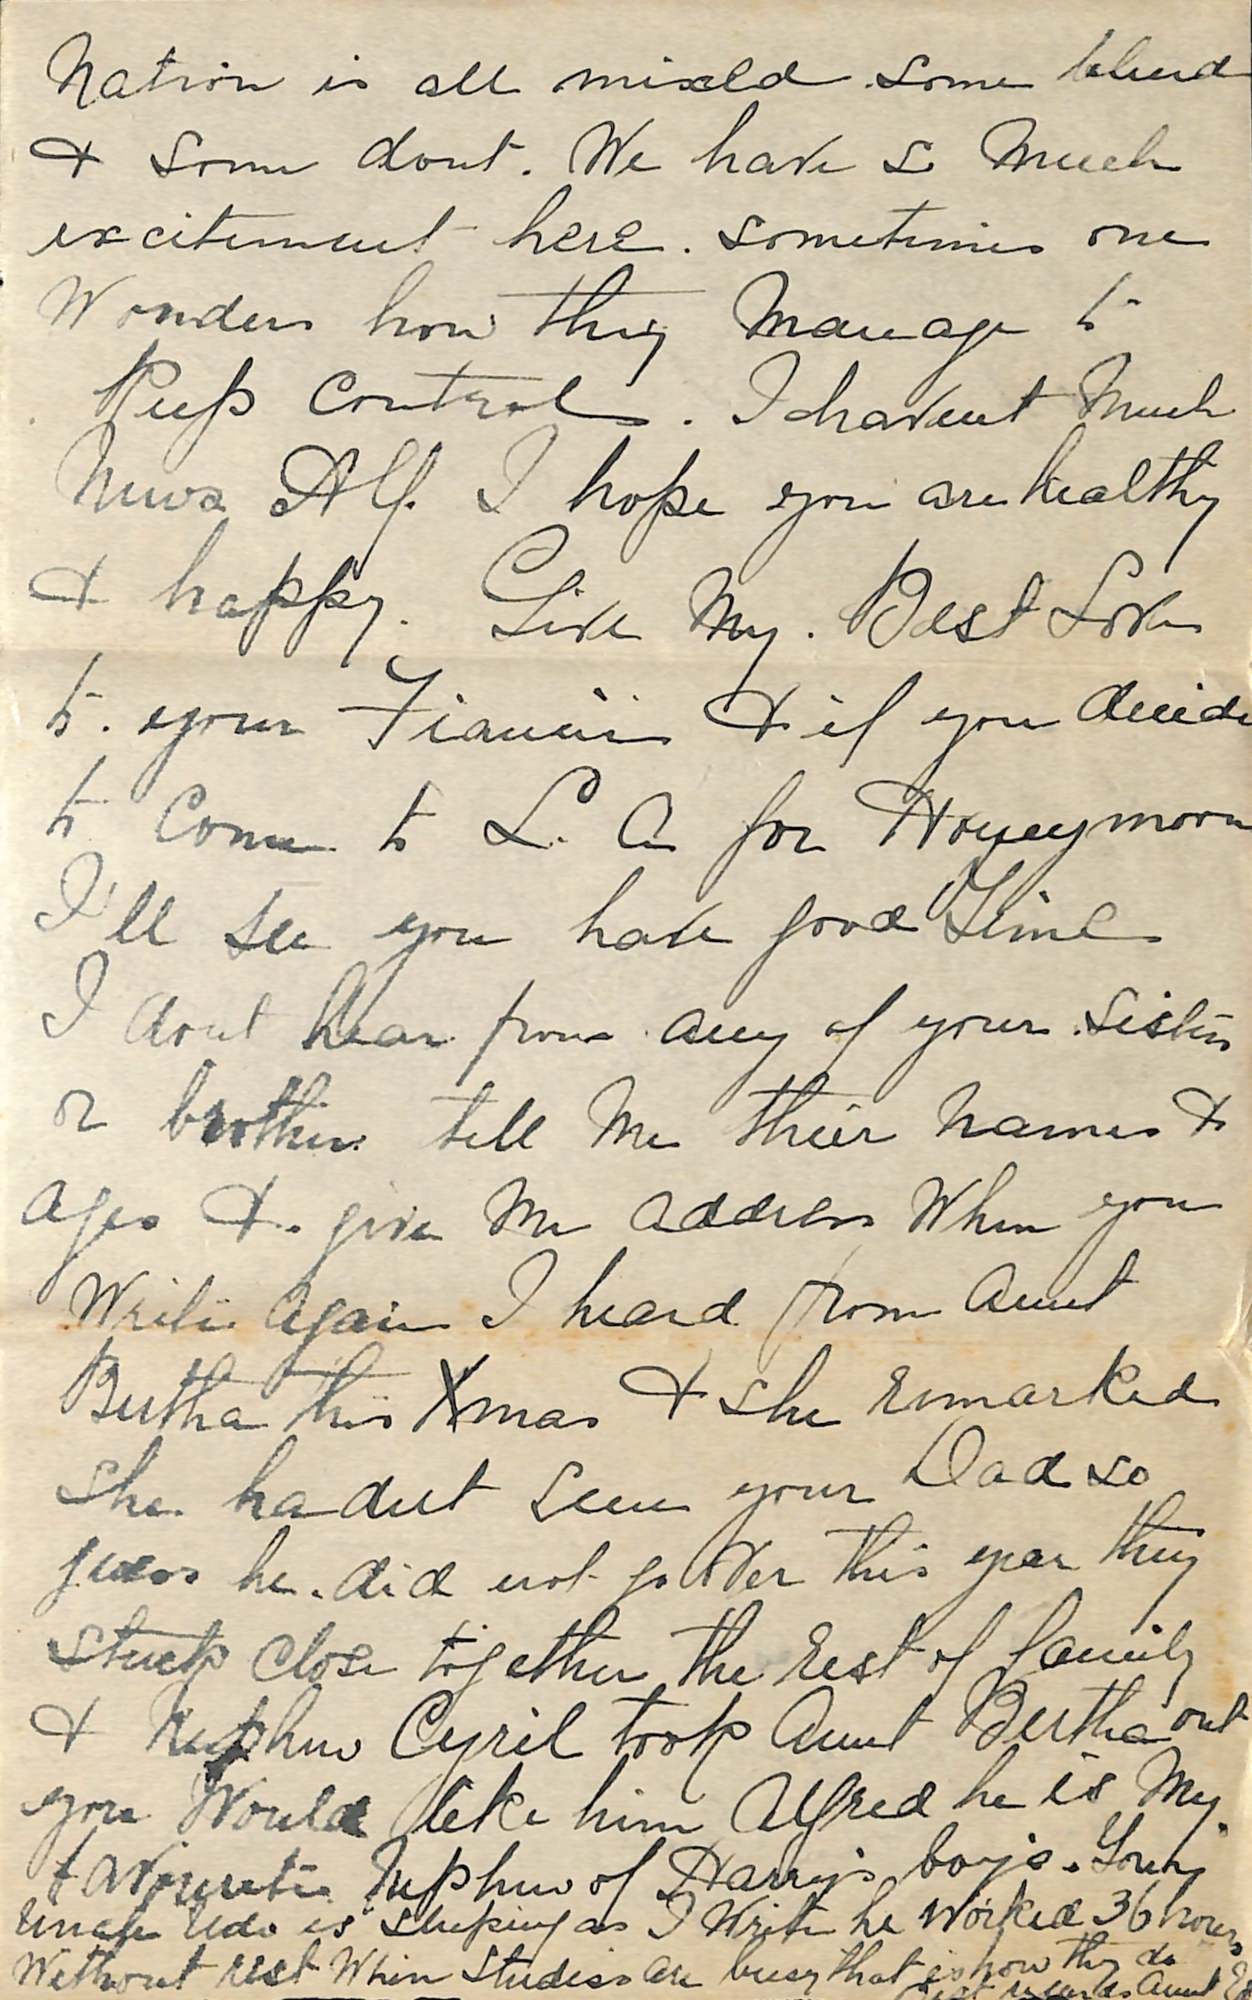 Nation is all mixed some blend
& some dont. We have so Much
excitement here. sometimes one
Wonders how they Manage to
Keep Control. I havent Much
News Alf. I hope you are healthy
& happy. Give My. Best Love
to. your Fiancée & if you decide
to Come to L. A for Honeymoon
I'll see you have good Time
I dont hear from any of your Sisters
or brother tell Me their Names &
Ages & give Me address When you
Write Again I heard from Aunt
Bertha this Xmas & she remarked
she hadnt seen your Dad so
guess he did not go over this year they
stuck close together the rest of family
& Nephew Cyril took Aunt Bertha out
you Would like him Alfred he is My
favourite Nephew of Harry's boys.
Uncle is sleeping as I Write he Worked 36 hours
Without rest When Studios are busy that is how they do
Aunt